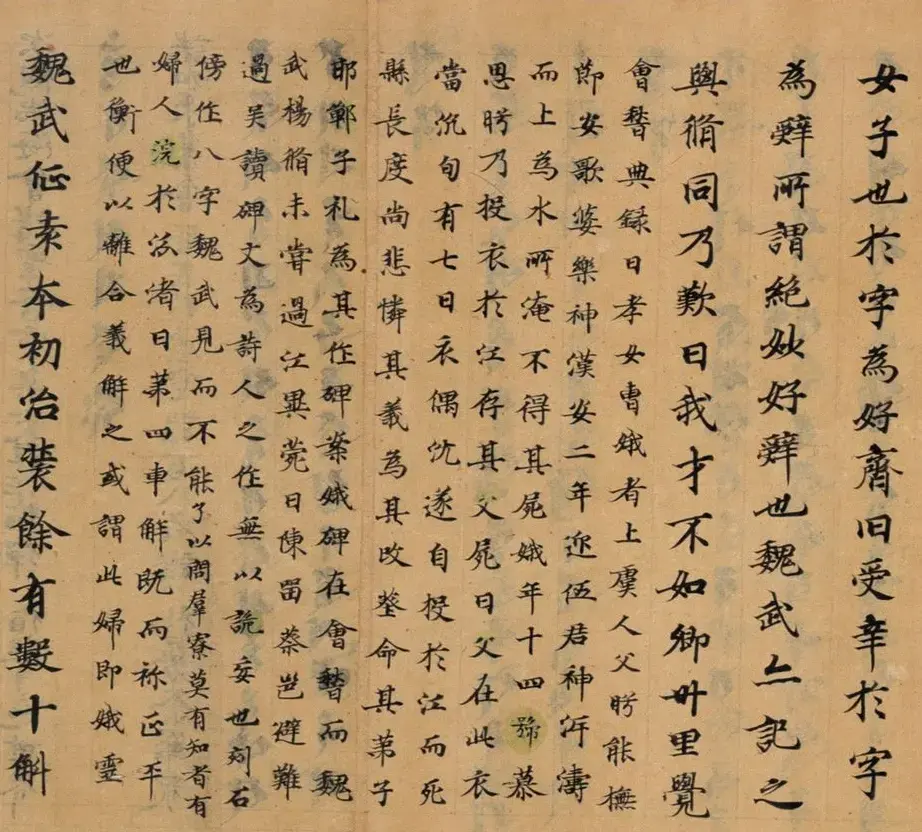 女子也於字為好齊臼受辛於字
為辤所謂絕妙好辤也魏武亦記之
與脩同乃歎曰我才不如卿卅里覺
會稽典録曰孝女曹娥者上虞人父盱能撫
節安歌婆樂神漢安二年迎伍君神泝濤
而上為水所淹不得其屍娥年十四號慕
思盱乃投衣於江存其父屍曰父在此衣
當沉旬有七日衣偶沉遂自投於江而死
縣長度尚悲憐其義為其改葬命其弟子
邯鄲子礼為其作碑案娥碑在會稽而魏
武楊脩未甞過江異菀曰陳留蔡邕避難
過吴讀碑文為詩人之作無以詭妄也刻石
傍作八字魏武見而不能了以問羣寮莫有知者有
婦人浣於汾渚曰第四車解既而祢正平
也衡便以離合義解之或謂此婦即娥靈
魏武征袁本初治装餘有數十斛